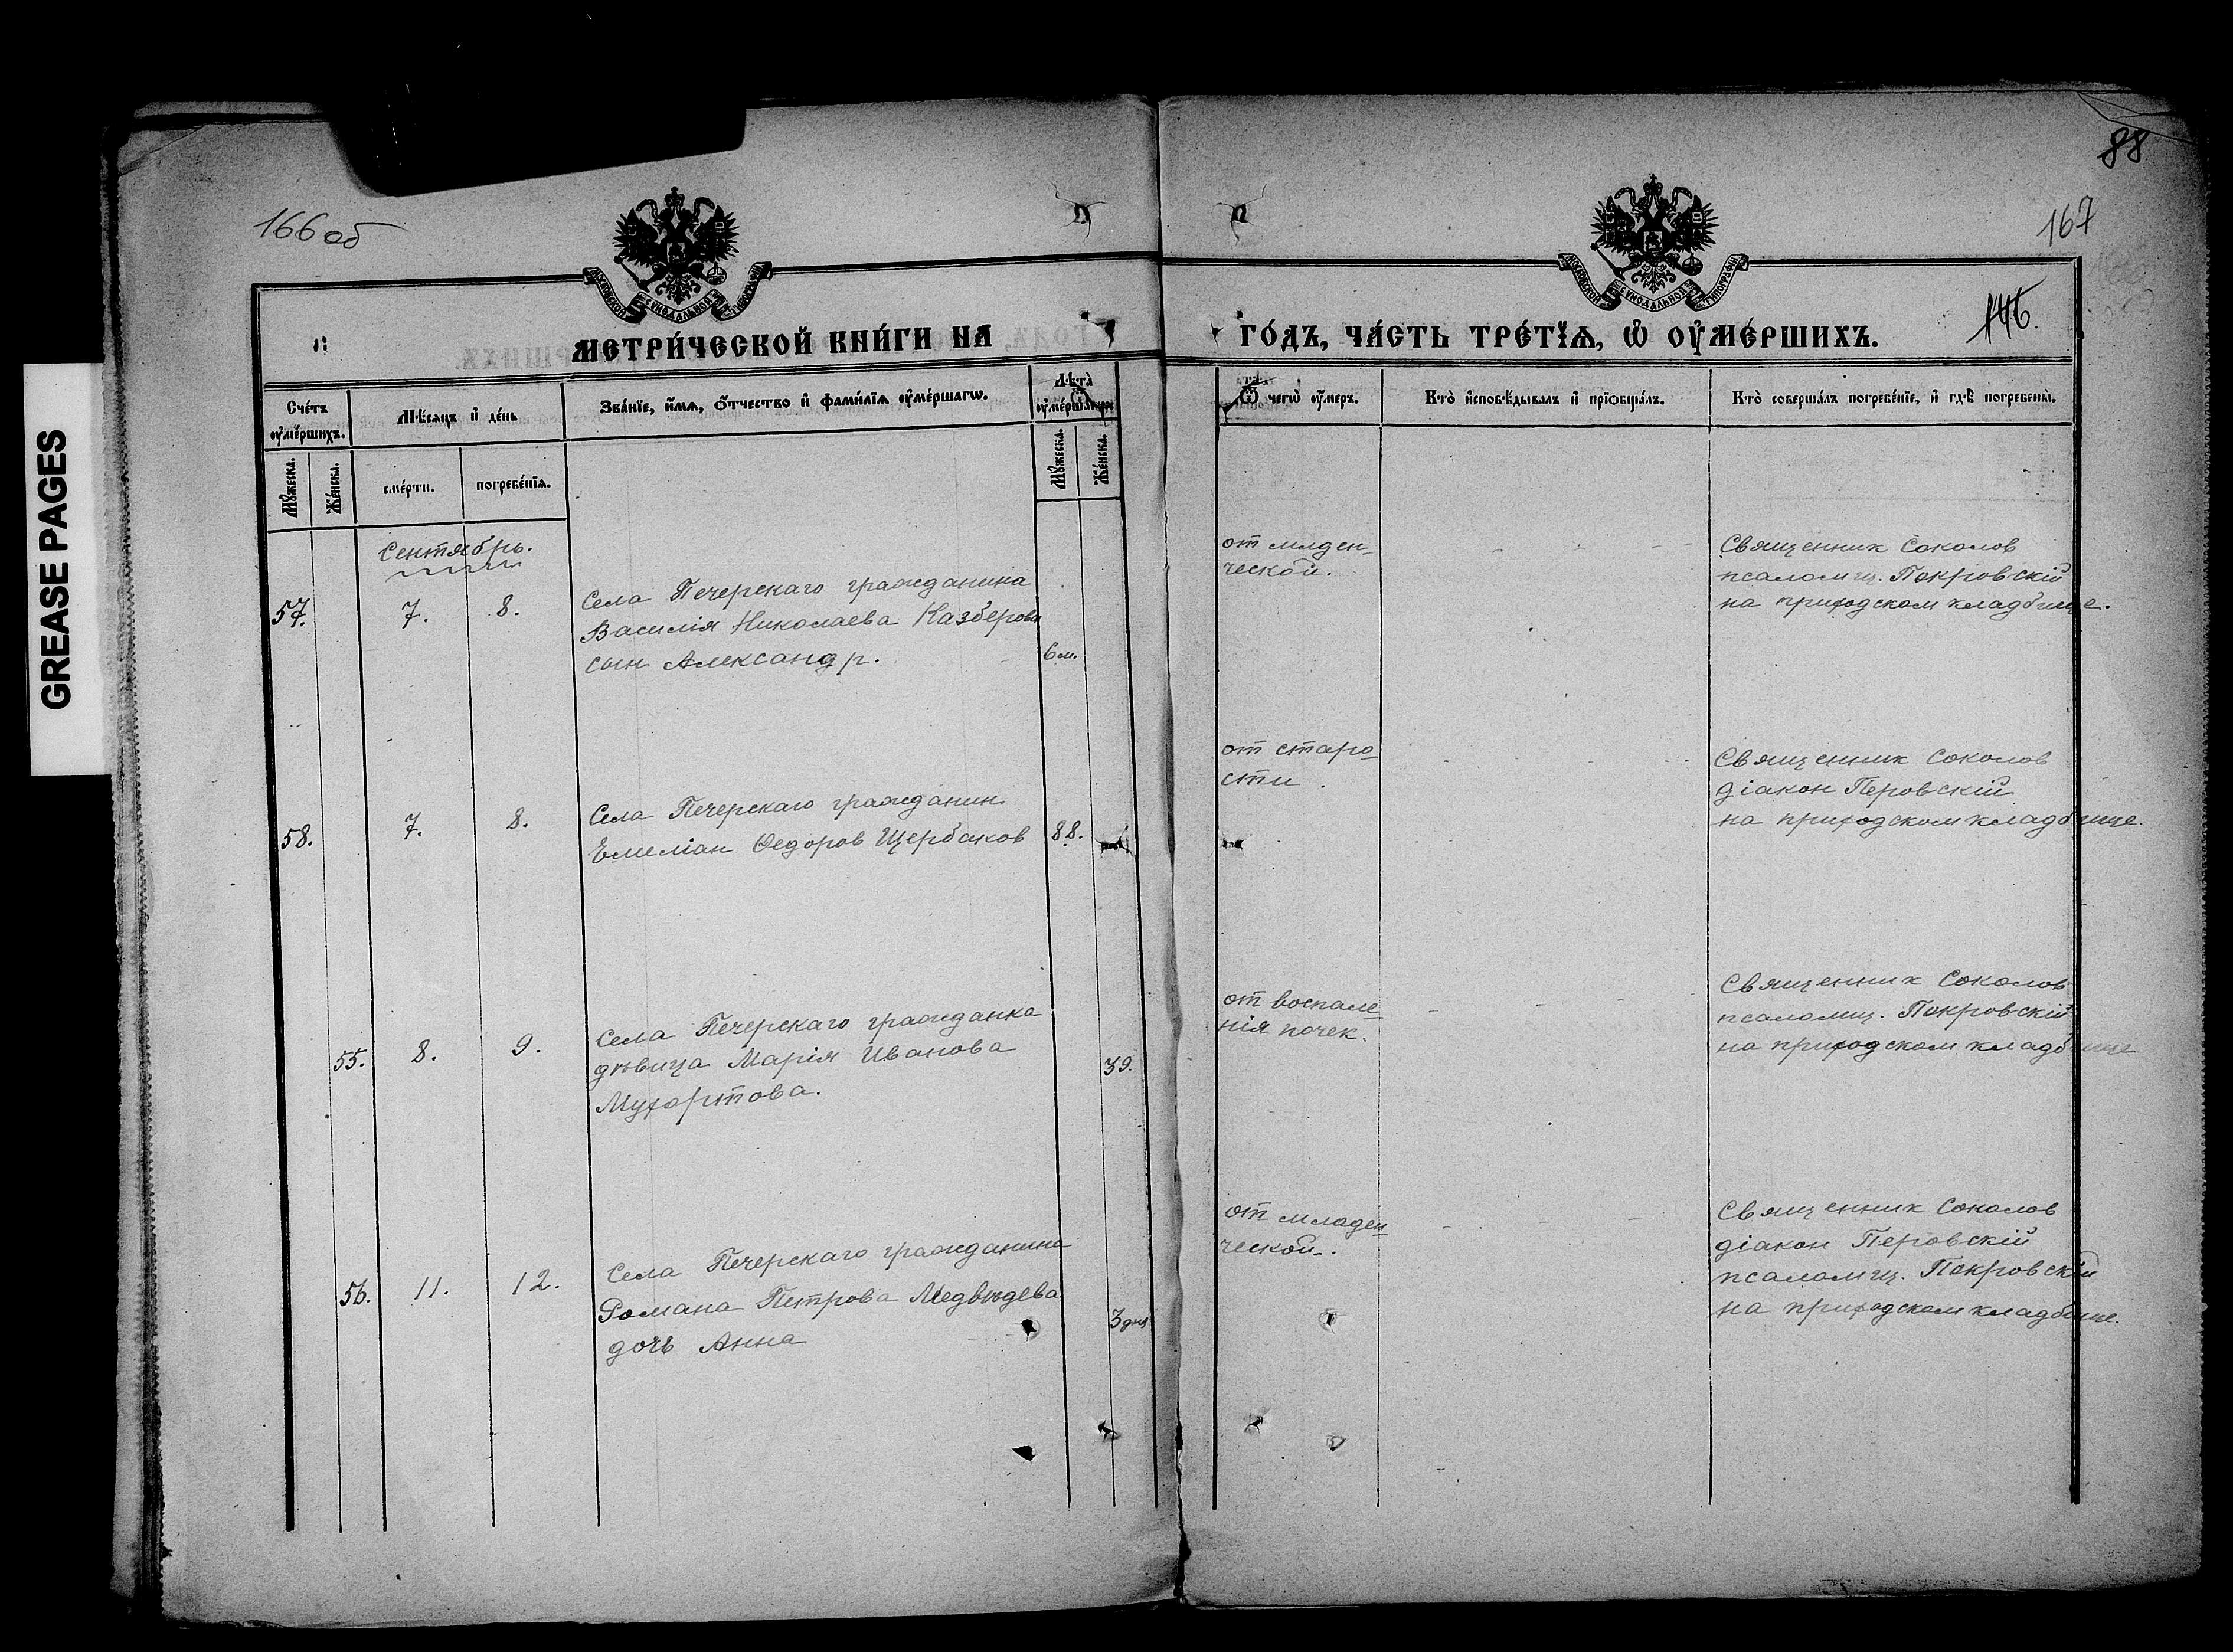 GREASE PAGES
166 об
МОСКОВСКОЙ СѴНОДАЛЬНОЙ ТИПОГРАФІИ
МЕТРИ́ЧЕСКОЙ КНИ́ГИ НА
Сче́тъ ᲂу҆ме́ршихъ.
Мѣ́сяцъ и҆ де́нь
Зва́нїе, и҆́мѧ, ѻ҆́тчество и҆ фами́лїѧ ᲂу҆ме́ршагѡ.
Лѣ́та ᲂу҆ме́ршагѡ
Мꙋ́жеска.
Же́нска.
сме́рти.
погребе́нїѧ.
Мꙋ́жеска.
Же́нска.
Сентябрь.
57.
7.
8.
Села Печерскаго гражданина
Василія Николаева Казберова
сын Александр.
6 м.
58.
7.
8.
Села Печерскаго гражданин
Емеліан Ѳедоров Щербаков
88.
55.
8.
9.
Села Печерскаго гражданка
дѣвица Марія Иванова
Мухортова.
39.
56.
11.
12.
Села Печерскаго гражданина
Романа Петрова Медвѣдева
дочь Анна
3 дня
88
167
146.
МОСКОВСКОЙ СѴНОДАЛЬНОЙ ТИПОГРАФІИ
ГО́ДЪ, ЧА́СТЬ ТРЕ́ТЇѦ, Ѡ҆ ОУ҆МЕ́РШИХЪ.
Ѿ чегѡ̀ ᲂу҆́меръ.
Кто̀ и҆сповѣ́дывалъ и҆ прїѡбща́лъ.
Кто̀ соверша́лъ погребе́нїе, и҆ гдѣ̀ погребены̀.
от младен-
ческой.
Священник Соколов
псаломщ. Покровскій
на приходском кладбище.
от старо-
сти.
Священник Соколов
діакон Перовскій
на приходском кладбище.
от воспале-
нія почек.
Священник Соколов
псаломщ. Покровскій
на приходском кладбище
от младен-
ческой.
Священник Соколов
діакон Перовскій
псаломщ. Покровскій
на приходском кладбище.